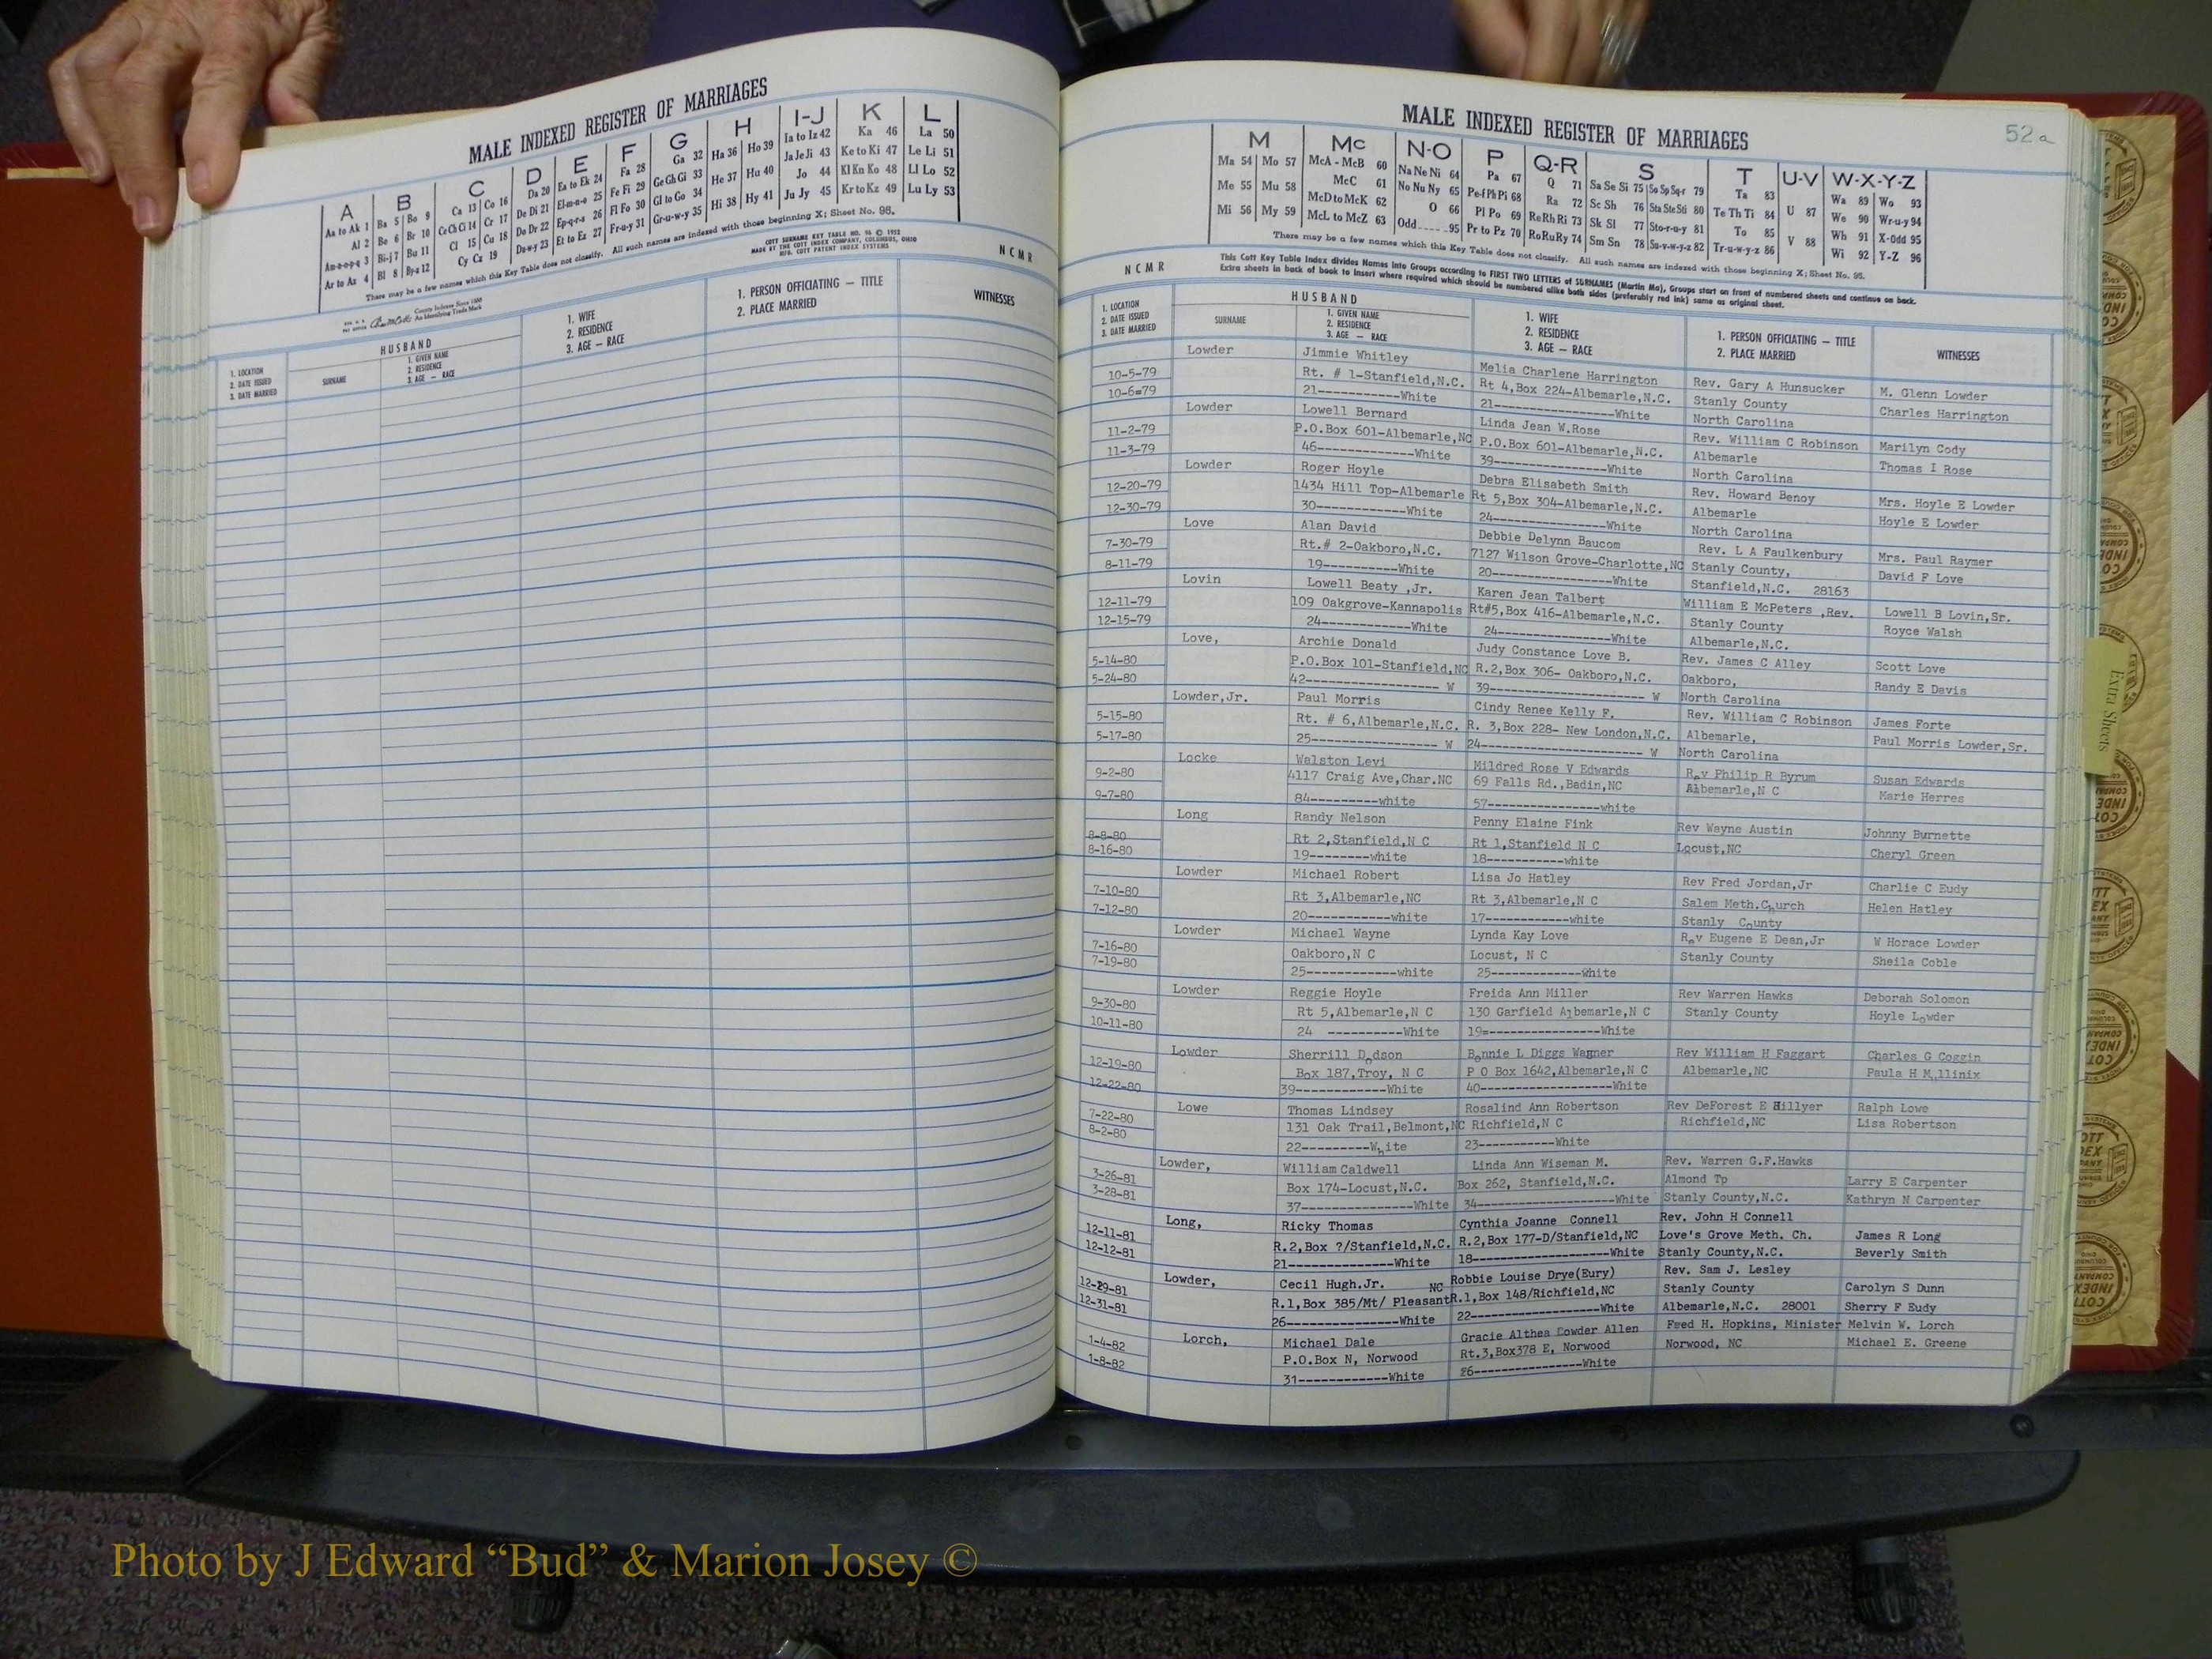 MALE INDEXED REGISTER OF MARRIAGES
A B C D E F G H I-J K L
Aa to Ak 1 Ba 5 Bo 9 Ca 13 Co 16 Da 20 Ea to Ek 24 Fa 28 Ga 32 Ha 36 Ho 39 Ia to Iz 42 Ka 46 La 50
Al 2 Be 6 Br 10 Ce Ch Ci 14 Cr 17 De Di 21 El-m-n-o 25 Fe Fi 29 Ge Gh Gi 33 He 37 Hu 40 Ja Je Ji 43 Ke to Ki 47 Le Li 51
Am-n-o-p-q 3 Bi-j 7 Bu 11 Cl 15 Cu 18 Do Dr 22 Ep-q-r-s 26 Fl Fo 30 Gl to Go 34 Hi 38 Hy 41 Jo 44 Kl Kn Ko 48 Ll Lo 52
Ar to Az 4 Bl 8 By-z 12 Cy Cz 19 Du-w-y 23 Et to Ez 27 Fr-u-y 31 Gr-u-w-y 35 Ju Jy 45 Kr to Kz 49 Lu Ly 53
There may be a few names which this Key Table does not classify. All such names are indexed with those beginning X; Sheet No. 96.
COTT SURNAME KEY TABLE NO. 96 © 1952
MADE BY THE COTT INDEX COMPANY, COLUMBUS, OHIO
MFG. COTT PATENT INDEX SYSTEMS
N C M R
County Indexes Since 1888
An Identifying Trade Mark
1. LOCATION
2. DATE ISSUED
3. DATE MARRIED
HUSBAND
SURNAME
1. GIVEN NAME
2. RESIDENCE
3. AGE — RACE
1. WIFE
2. RESIDENCE
3. AGE — RACE
1. PERSON OFFICIATING — TITLE
2. PLACE MARRIED
WITNESSES
MALE INDEXED REGISTER OF MARRIAGES
52a
M Mc N-O P Q-R S T U-V W-X-Y-Z
Ma 54 Mo 57 McA - McB 60 Na Ne Ni 64 Pa 67 Q 71 Sa Se Si 75 So Sp Sq-r 79 Ta 83 U 87 Wa 89 Wo 93
Me 55 Mu 58 McC 61 No Nu Ny 65 Pe-f Ph Pi 68 Ra 72 Sc Sh 76 Sta Ste Sti 80 Te Th Ti 84 V 88 We 90 Wr-u-y 94
Mi 56 My 59 McD to McK 62 O 66 Pl Po 69 Re Rh Ri 73 Sk Sl 77 Sto-r-u-y 81 To 85 Wh 91 X-Odd 95
McL to McZ 63 Odd 95 Pr to Pz 70 Ro Ru Ry 74 Sm Sn 78 Su-v-w-y-z 82 Tr-u-w-y-z 86 Wi 92 Y-Z 96
There may be a few names which this Key Table does not classify. All such names are indexed with those beginning X; Sheet No. 95.
N C M R
This Cott Key Table Index divides Names into Groups according to FIRST TWO LETTERS of SURNAMES (Martin Ma), Groups start on front of numbered sheets and continue on back.
Extra sheets in back of book to insert where required which should be numbered alike both sides (preferably red ink) same as original sheet.
1. LOCATION
2. DATE ISSUED
3. DATE MARRIED
HUSBAND
SURNAME
1. GIVEN NAME
2. RESIDENCE
3. AGE — RACE
1. WIFE
2. RESIDENCE
3. AGE — RACE
1. PERSON OFFICIATING — TITLE
2. PLACE MARRIED
WITNESSES
Lowder Jimmie Whitley Melia Charlene Harrington Rev. Gary A Hunsucker M. Glenn Lowder
10-5-79 Rt. # 1-Stanfield,N.C. Rt 4,Box 224-Albemarle,N.C. Stanly County Charles Harrington
10-6=79 21-----------White 21---------------White North Carolina
Lowder Lowell Bernard Linda Jean W.Rose Rev. William C Robinson Marilyn Cody
11-2-79 P.O.Box 601-Albemarle,NC P.O.Box 601-Albemarle,N.C. Albemarle Thomas I Rose
11-3-79 46-------------White 39---------------White North Carolina
Lowder Roger Hoyle Debra Elisabeth Smith Rev. Howard Benoy Mrs. Hoyle E Lowder
12-20-79 1434 Hill Top-Albemarle Rt 5,Box 304-Albemarle,N.C. Albemarle Hoyle E Lowder
12-30-79 30------------White 24---------------White North Carolina
Love Alan David Debbie Delynn Baucom Rev. L A Faulkenbury Mrs. Paul Raymer
7-30-79 Rt.# 2-Oakboro,N.C. 7127 Wilson Grove-Charlotte,NC Stanly County, David F Love
8-11-79 19----------White 20---------------White Stanfield,N.C. 28163
Lovin Lowell Beaty ,Jr. Karen Jean Talbert William E McPeters ,Rev. Lowell B Lovin,Sr.
12-11-79 109 Oakgrove-Kannapolis Rt#5,Box 416-Albemarle,N.C. Stanly County Royce Walsh
12-15-79 24------------White 24--------------White Albemarle,N.C.
Love, Archie Donald Judy Constance Love B. Rev. James C Alley Scott Love
5-14-80 P.O.Box 101-Stanfield,NC R.2,Box 306- Oakboro,N.C. Oakboro, Randy E Davis
5-24-80 42----------------- W 39-------------------- W North Carolina
Lowder,Jr. Paul Morris Cindy Renee Kelly F. Rev. William C Robinson James Forte
5-15-80 Rt. # 6,Albemarle,N.C. R. 3,Box 228- New London,N.C. Albemarle, Paul Morris Lowder,Sr.
5-17-80 25---------------- W 24--------------------- W North Carolina
Locke Walston Levi Mildred Rose V Edwards Rev Philip R Byrum Susan Edwards
9-2-80 4117 Craig Ave,Char.NC 69 Falls Rd.,Badin,NC Albemarle,N C Marie Herres
9-7-80 84---------white 57---------------white
Long Randy Nelson Penny Elaine Fink Rev Wayne Austin Johnny Burnette
8-8-80 Rt 2,Stanfield,N C Rt 1,Stanfield N C Locust,NC Cheryl Green
8-16-80 19--------white 18-----------white
Lowder Michael Robert Lisa Jo Hatley Rev Fred Jordan,Jr Charlie C Eudy
7-10-80 Rt 3,Albemarle,NC Rt 3,Albemarle,N C Salem Meth.Church Helen Hatley
7-12-80 20-----------white 17------------white Stanly County
Lowder Michael Wayne Lynda Kay Love Rev Eugene E Dean,Jr W Horace Lowder
7-16-80 Oakboro,N C Locust, N C Stanly County Sheila Coble
7-19-80 25------------white 25------------White
Lowder Reggie Hoyle Freida Ann Miller Rev Warren Hawks Deborah Solomon
9-30-80 Rt 5,Albemarle,N C 130 Garfield Albemarle,N C Stanly County Hoyle Lowder
10-11-80 24 ----------White 19=---------------White
Lowder Sherrill Dodson Bonnie L Diggs Wagner Rev William H Faggart Charles G Coggin
12-19-80 Box 187,Troy, N C P O Box 1642,Albemarle,N C Albemarle,NC Paula H Mullinix
12-22-80 39--------------White 40------------------White
Lowe Thomas Lindsey Rosalind Ann Robertson Rev DeForest E Hillyer Ralph Lowe
7-22-80 131 Oak Trail,Belmont,NC Richfield,N C Richfield,NC Lisa Robertson
8-2-80 22----------White 23-----------White
Lowder, William Caldwell Linda Ann Wiseman M. Rev. Warren G.F.Hawks
3-26-81 Box 174-Locust,N.C. Box 262, Stanfield,N.C. Almond Tp Larry E Carpenter
3-28-81 37---------------White 34-------------------White Stanly County,N.C. Kathryn N Carpenter
Long, Ricky Thomas Cynthia Joanne Connell Rev. John H Connell
12-11-81 R.2,Box ?/Stanfield,N.C. R.2,Box 177-D/Stanfield,NC Love's Grove Meth. Ch. James R Long
12-12-81 21--------------White 18-------------------White Stanly County,N.C. Beverly Smith
Lowder, Cecil Hugh.Jr. NC Robbie Louise Drye(Eury) Rev. Sam J. Lesley
12-29-81 R.1,Box 385/Mt/ Pleasant R.1,Box 148/Richfield,NC Stanly County Carolyn S Dunn
12-31-81 26---------------White 22-------------------White Albemarle,N.C. 28001 Sherry F Eudy
Lorch, Michael Dale Gracie Althea Lowder Allen Fred H. Hopkins, Minister Melvin W. Lorch
1-4-82 P.O.Box N, Norwood Rt.3,Box378 E, Norwood Norwood, NC Michael E. Greene
1-8-82 31------------White 26----------------White
Extra Sheets
Photo by J Edward “Bud” & Marion Josey ©